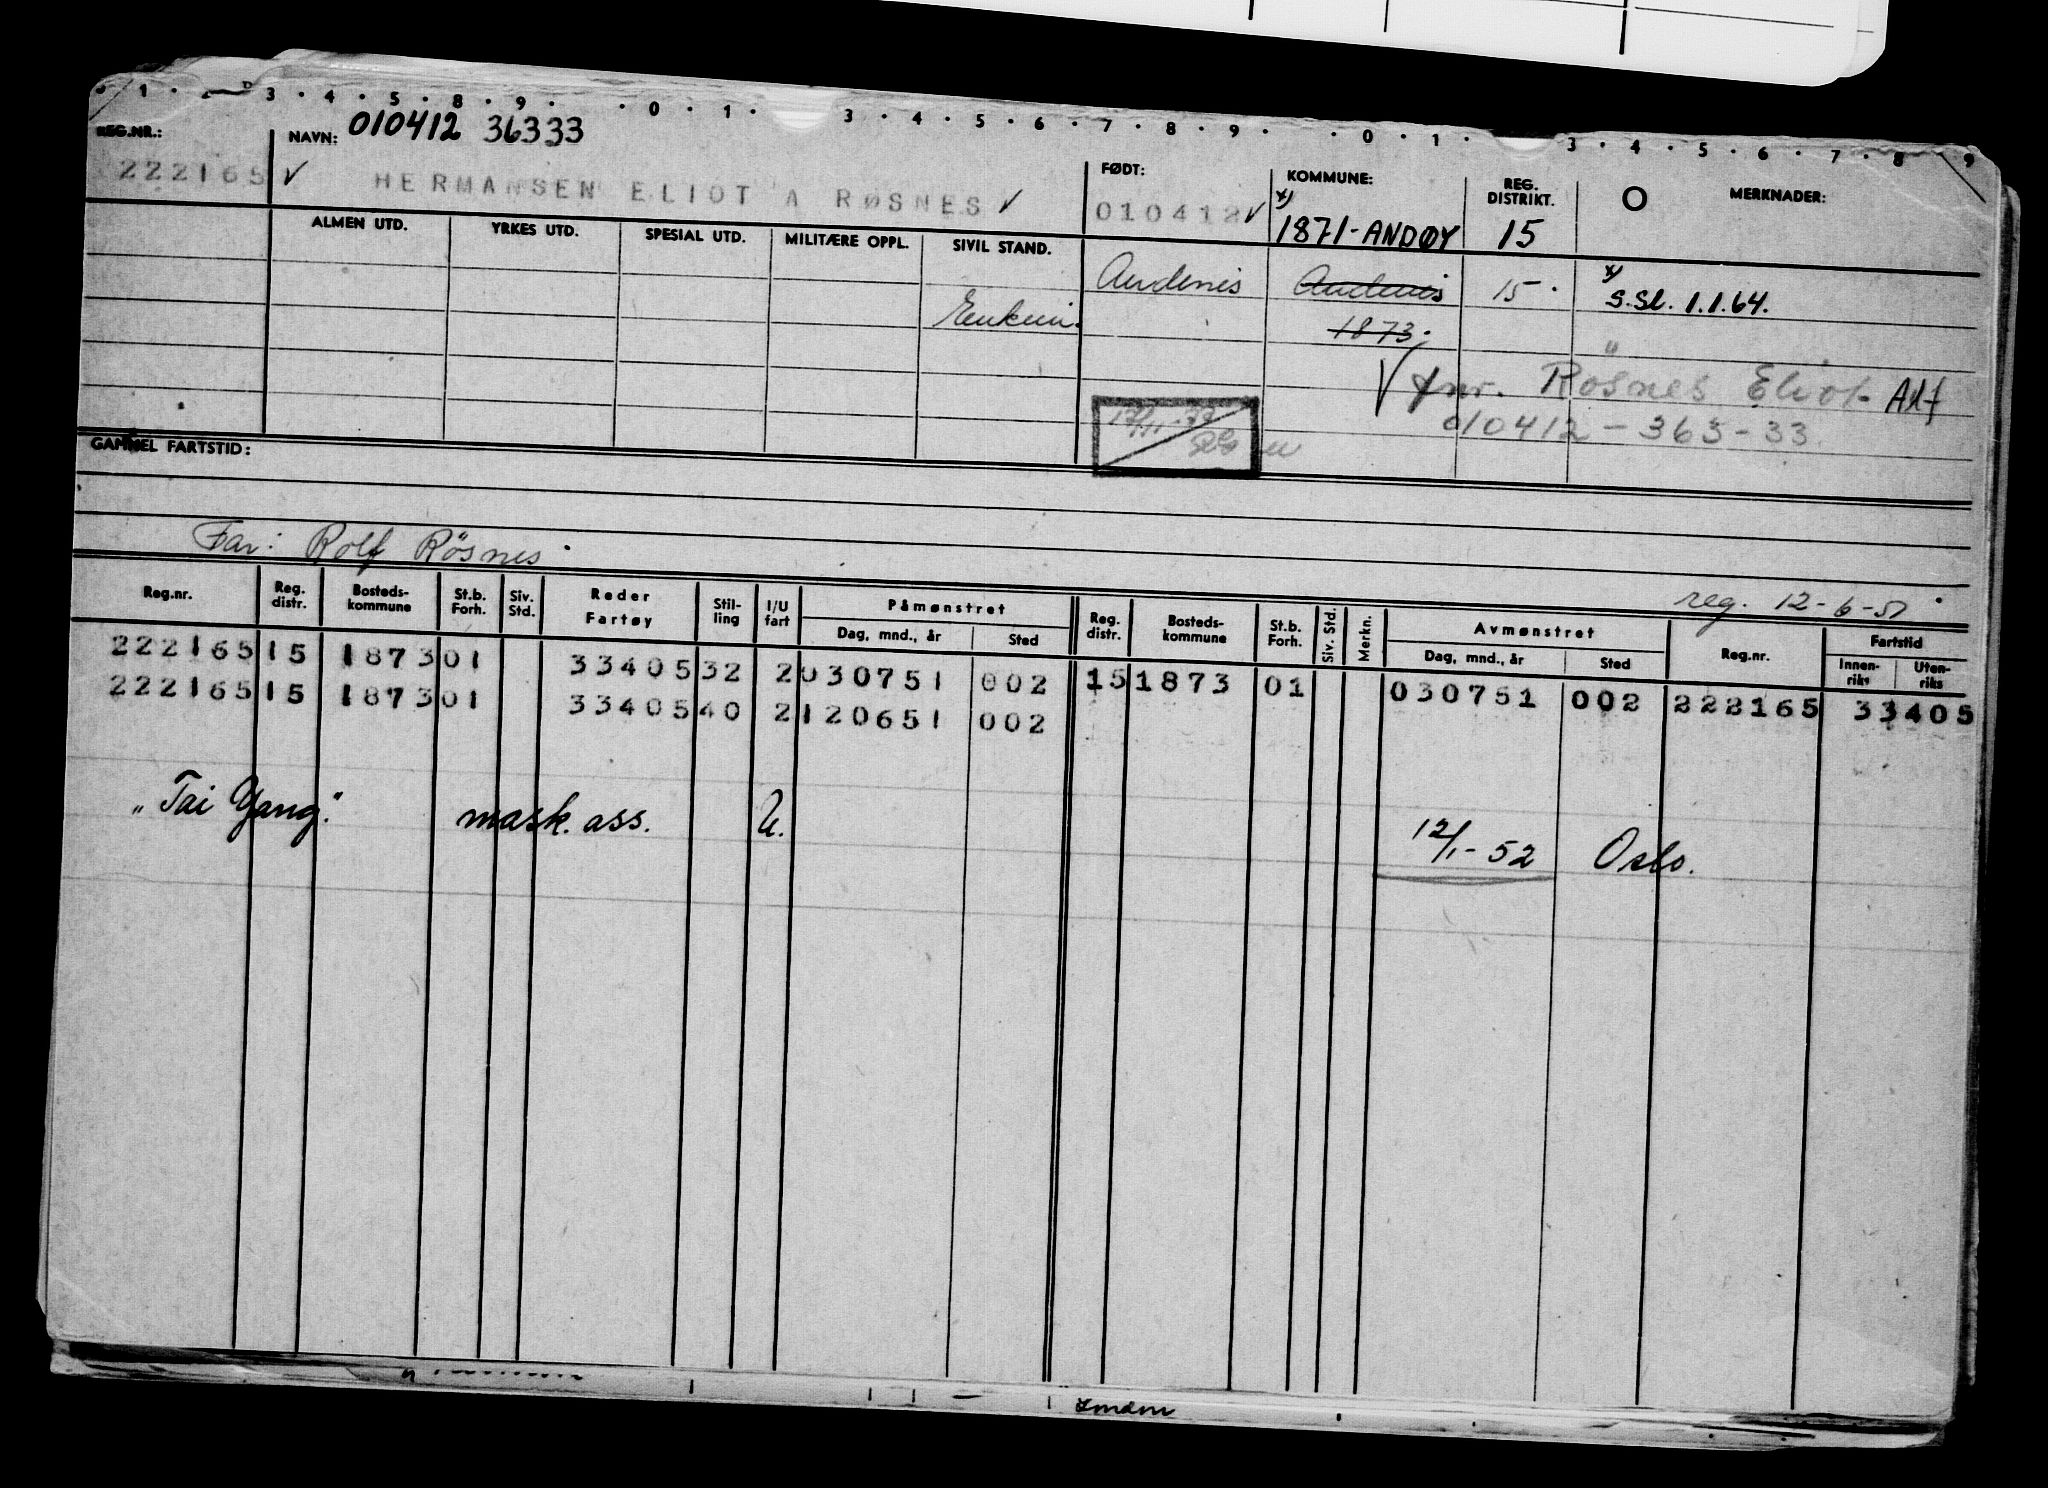 1 · 3 · 4 · 5 · 8 · 9 · · 0 · 1 · 3 · 4 · 5 · 6 · 7 · 8 · 9 · · 0 · 1 · 3 · 4 · 5 · 6 · 7 · 8 · 9
REG.NR.: NAVN: 010412 36333 FØDT: KOMMUNE: REG. DISTRIKT. O MERKNADER:
222165 ✓ HERMANSEN ELIOT A RØSNES ✓ 010412 ✓ x) 1871-ANDØY 15
ALMEN UTD. YRKES UTD. SPESIAL UTD. MILITÆRE OPPL. SIVIL STAND.
Andenes Andenes 15 · x) S.Sl. 1.1.64.
1873.
✓ fnr. Røsnes Eliot Alf
010412-363-33
GAMMEL FARTSTID:
Far: Rolf Rösnes.
reg. 12-6-51
Reg.nr. Reg. distr. Bosteds-kommune St.b. Forh. Siv. Std. Reder Fartøy Stil-ling I/U fart Påmønstret Dag, mnd., år Sted Reg. distr. Bosteds-kommune St.b. Forh. Siv. Std. Merkn. Avmønstret Dag, mnd., år Sted Reg.nr. Fartstid Innen-riks Uten-riks
222165 15 1873 01 33405 32 2 030751 002 15 1873 01 030751 002 222165 33405
222165 15 1873 01 33405 40 2 120651 002
"Tai Yang". mask. ass. U. 12/1-52 Oslo.
London